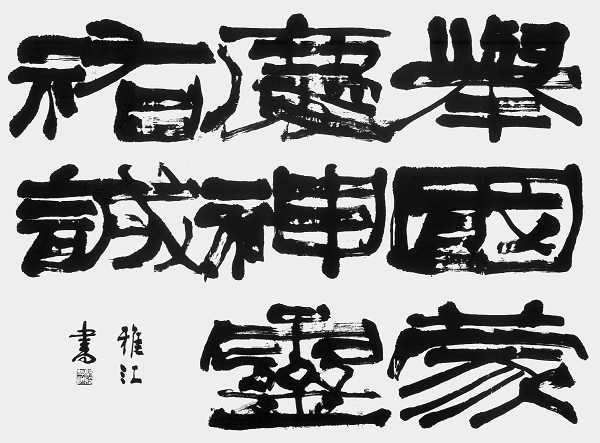 舉國蒙
慶神靈
祐誠
雅江
書